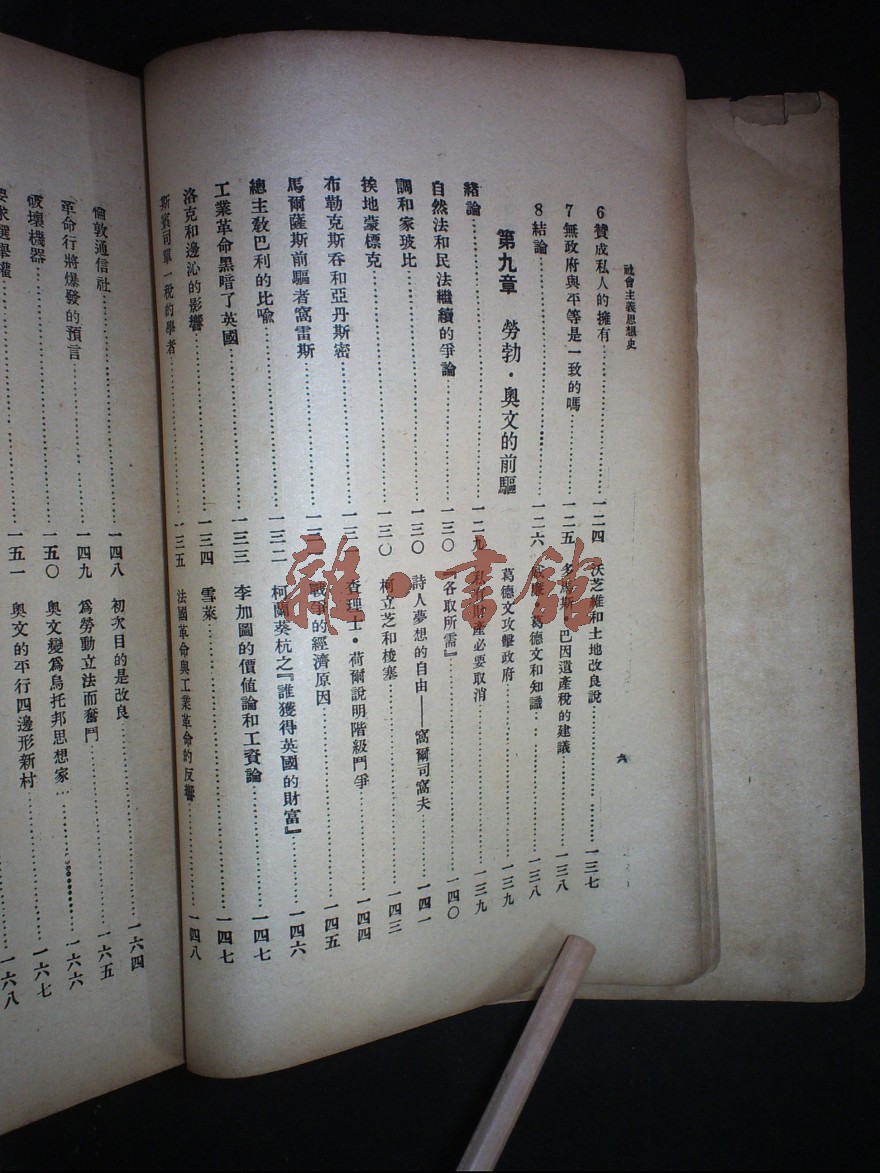 社會主義思想史
六
6 贊成私人的擁有…………一二四
7 無政府與平等是一致的嗎…………一二五
8 結論…………一二六
第九章 勞勃·奧文的前驅
緒論…………一二九
自然法和民法繼續的爭論…………一三〇
調和家玻比…………一三〇
挨地蒙標克…………一三〇
布勒克斯吞和亞丹斯密…………一三一
馬爾薩斯前驅者窩雷斯…………一三二
總主教巴利的比喩…………一三二
工業革命黑暗了英國…………一三三
洛克和邊沁的影響…………一三四
斯賓司單一稅的學者…………一三五
沃芝維和土地改良說…………一三七
多馬斯·巴因遺產稅的建議…………一三八
威廉·葛德文和知識…………一三八
葛德文攻擊政府…………一三九
私有財產必要取消…………一三九
『各取所需』…………一四〇
詩人夢想的自由——窩爾司窩夫…………一四一
柯立芝和梭塞…………一四三
查理士·荷爾說明階級鬥爭…………一四四
戰爭的經濟原因…………一四五
柯蘭葵杭之『誰獲得英國的財富』…………一四六
李加圖的價値論和工資論…………一四七
雪萊…………一四七
法國革命與工業革命的反響…………一四八
倫敦通信社…………一四八
革命行將爆發的預言…………一四九
破壞機器…………一五〇
要求選舉權…………一五一
初次目的是改良…………一六四
爲勞動立法而奮鬥…………一六五
奧文變爲烏托邦思想家…………一六六
奧文的平行四邊形新村…………一六七
一六八
雜·書館